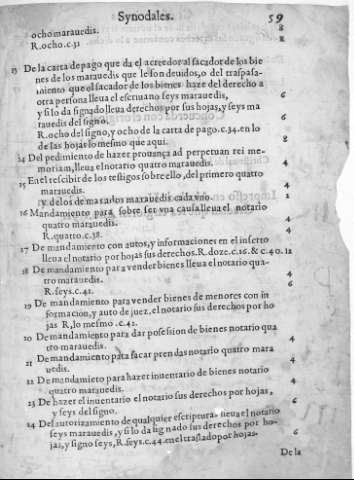 Synodales. 59
ocho marauedis. 8
R.ocho.c.31 8
13 De la carta de pago que da el acreedor al sacador de los bie
nes de los marauedis que le son deuidos, o del traspasa-
miento que el sacador de los bienes haze del derecho a
otra persona lleua el escriuano seys marauedis, 6
y si lo da signado lleua derechos por sus hojas, y seys ma
rauedis del signo. 6
R.ocho del signo, y ocho de la carta de pago.c.34.en lo
de las hojas lo mesmo que aqui. 8
14 Del pedimiento de hazer prouança ad perpetuan rei me-
moriam, lleua el notario quatro marauedis. 4
15 En el rescibir de los testigos sobre ello, del primero quatro
marauedis. 4
y delos de mas a dos marauedis cada vno. 2
16 Mandamiento para sobre ser vna causa lleua el notario
quatro marauedis. 4
R.quatro.c.38.
17 De mandamiento con autos, y informaciones en el inserto
lleua el notario por hojas sus derechos.R.doze.c.16.& c.40. 12
18 De mandamiento para vender bienes lleua el notario qua-
tro marauedis. 4
R.seys.c.42. 6
19 De mandamiento para vender bienes de menores con in
formacion, y auto de juez, el notario sus derechos por ho
jas R, lo mesmo .c.42.
20 De mandamiento para dar possesion de bienes notario qua
tro marauedis. 4
21 De mandamiento para sacar prendas notario quatro mara
uedis. 4
22 De mandamiẽto para hazer inuentario de bienes notario
quatro marauedis. 4
23 De hazer el inuentario el notario sus derechos por hojas,
y seys del signo. 6
24 Del autorizamiento de qualquier escriptura lleua el notario
seys marauedis, y si lo da signado sus derechos por ho-
jas, y signo seys, R.seys.c.44.en el traslado por hojas. 6
De la